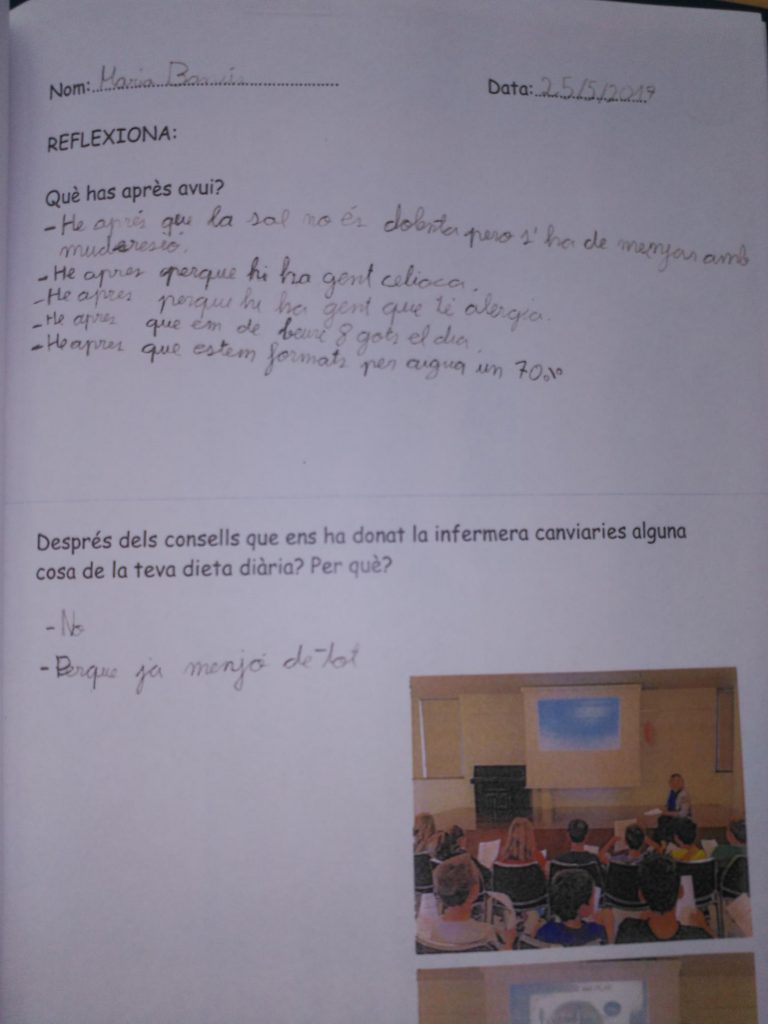 Nom: Maria
Data: 25/5/2017
REFLEXIONA:
Què has après avui?
- He aprés que la sal no és dolenta pero s'ha de menjar amb
muderesió.
- He apres perque hi ha gent celiaca.
- He apres perque hi ha gent que té alergia.
- He apres que em de beure 8 gots el dia.
- He apres que estem formats per aigua un 70%
Després dels consells que ens ha donat la infermera canviaries alguna
cosa de la teva dieta diària? Per què?
- No
- Perque ja menjo de tot